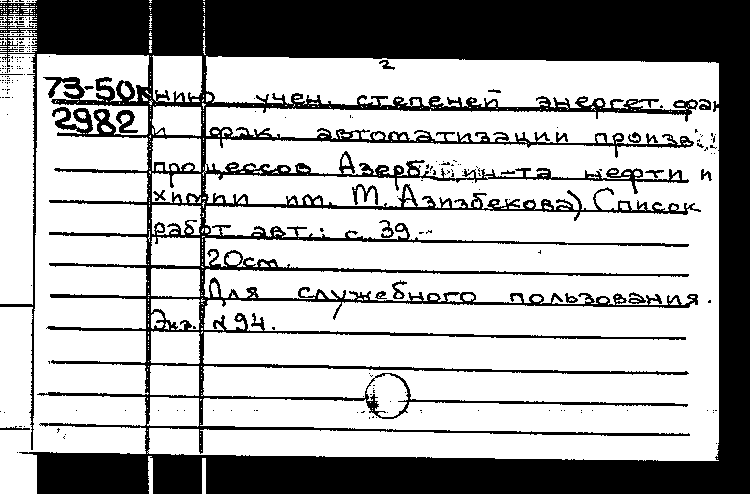 2
73-50к нию учен. степеней энергет. фак
2982 и фак. автоматизации произв.
процессов Азерб. ин-та нефти и
химии им. М. Азизбекова) Список
работ авт.: с. 39.-
20см.
Для служебного пользования.
Экз. №94.